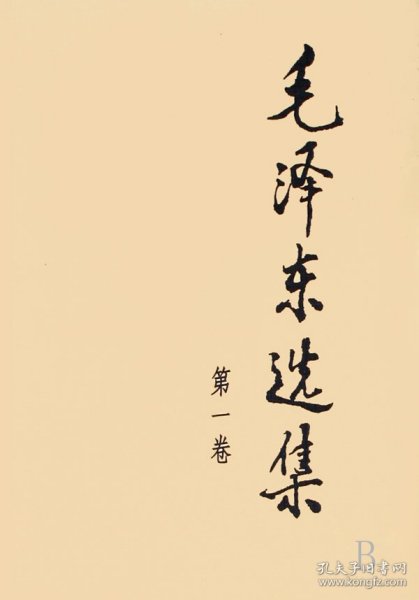 毛泽东选集
第一卷
B
孔夫子旧书网
www.kongfz.com